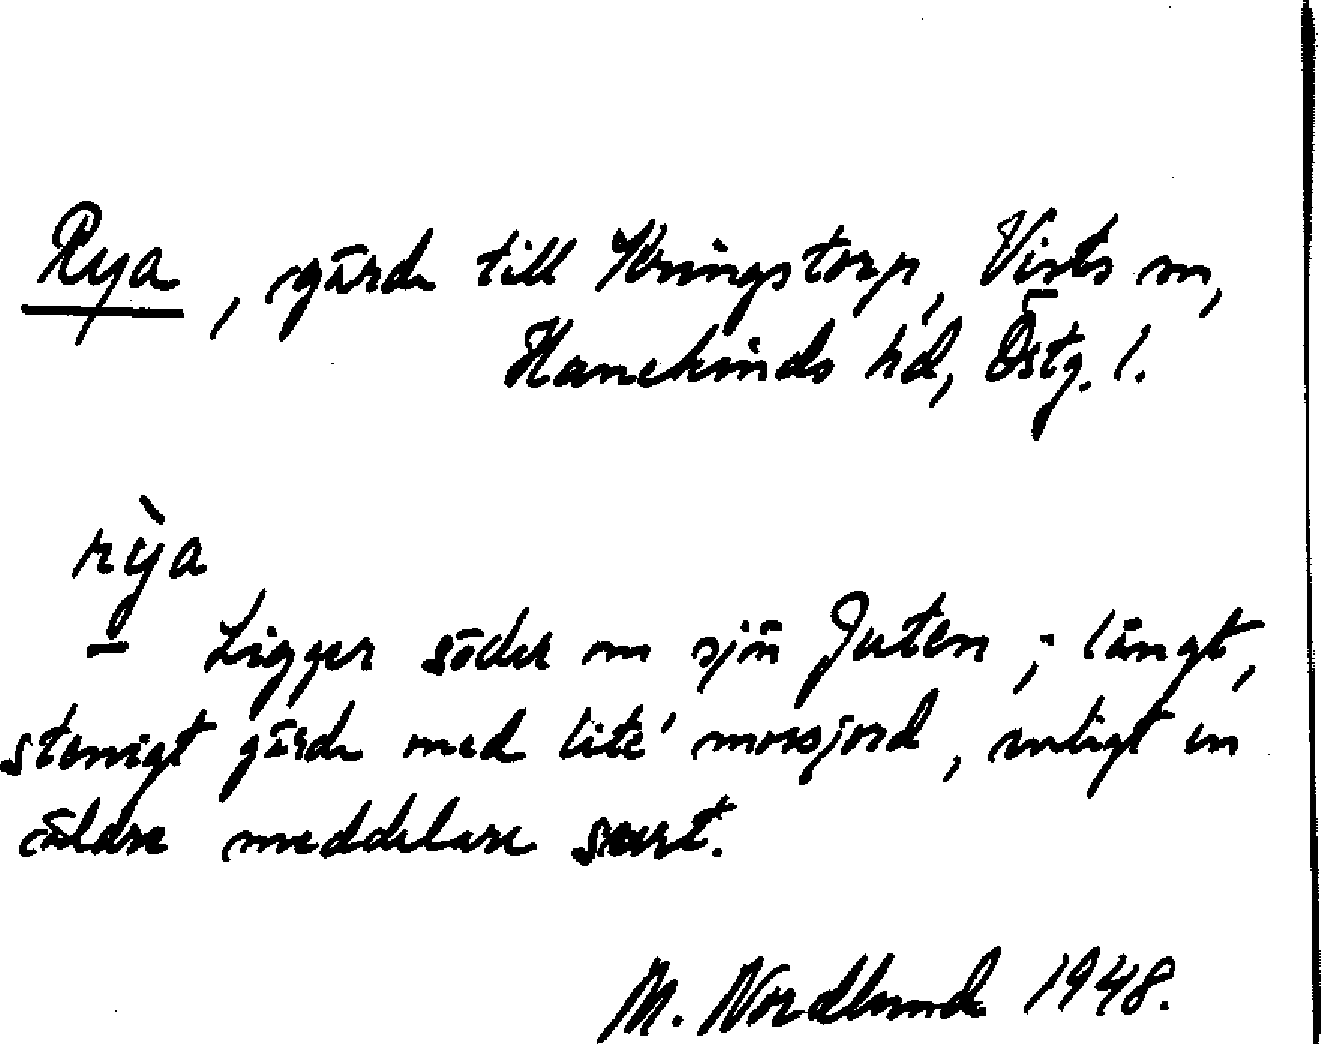 Rya, gärde till Kringstorp, Vists sn,
Hanekinds hd, Östg. l.
rỳa
– Ligger söder om sjön Juten; långt,
stenigt gärde med lite' mossjord, enligt en
äldre meddelare surt.
M. Nordlund 1948.